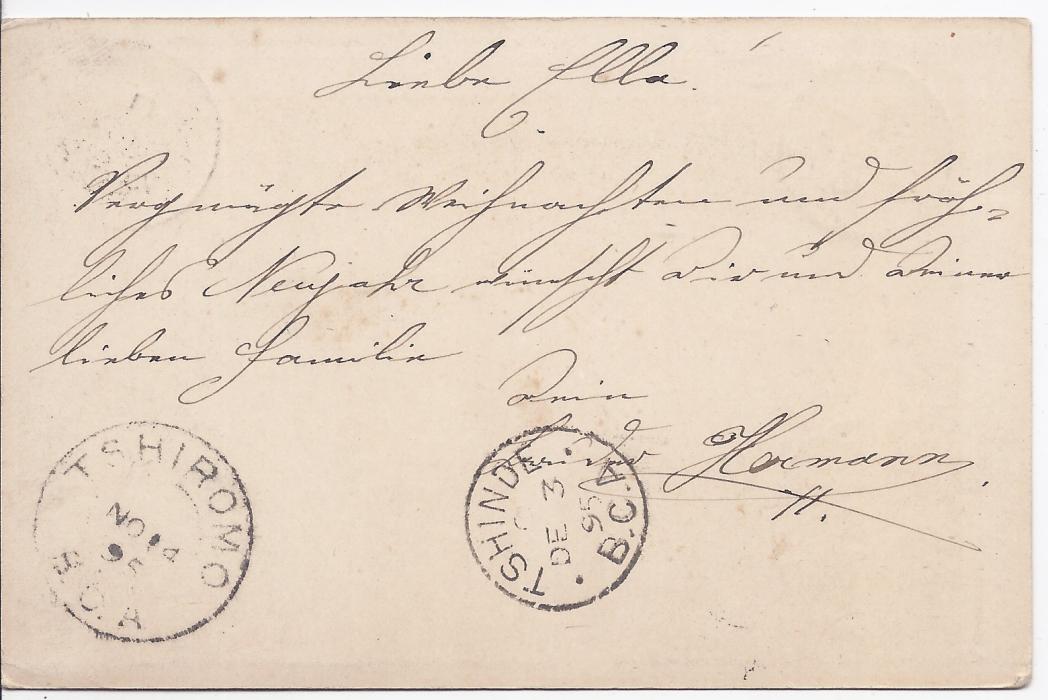 Liebe Ella.
Vergnügte Weihnachten und fröh-
liches Neujahr wünscht Dir und Deiner
lieben Familie
Dein
Bruder Hermann.
TSHIROMO
NO
95
B.C.A
TSHINDE
C
DE 3
95
B.C.A.